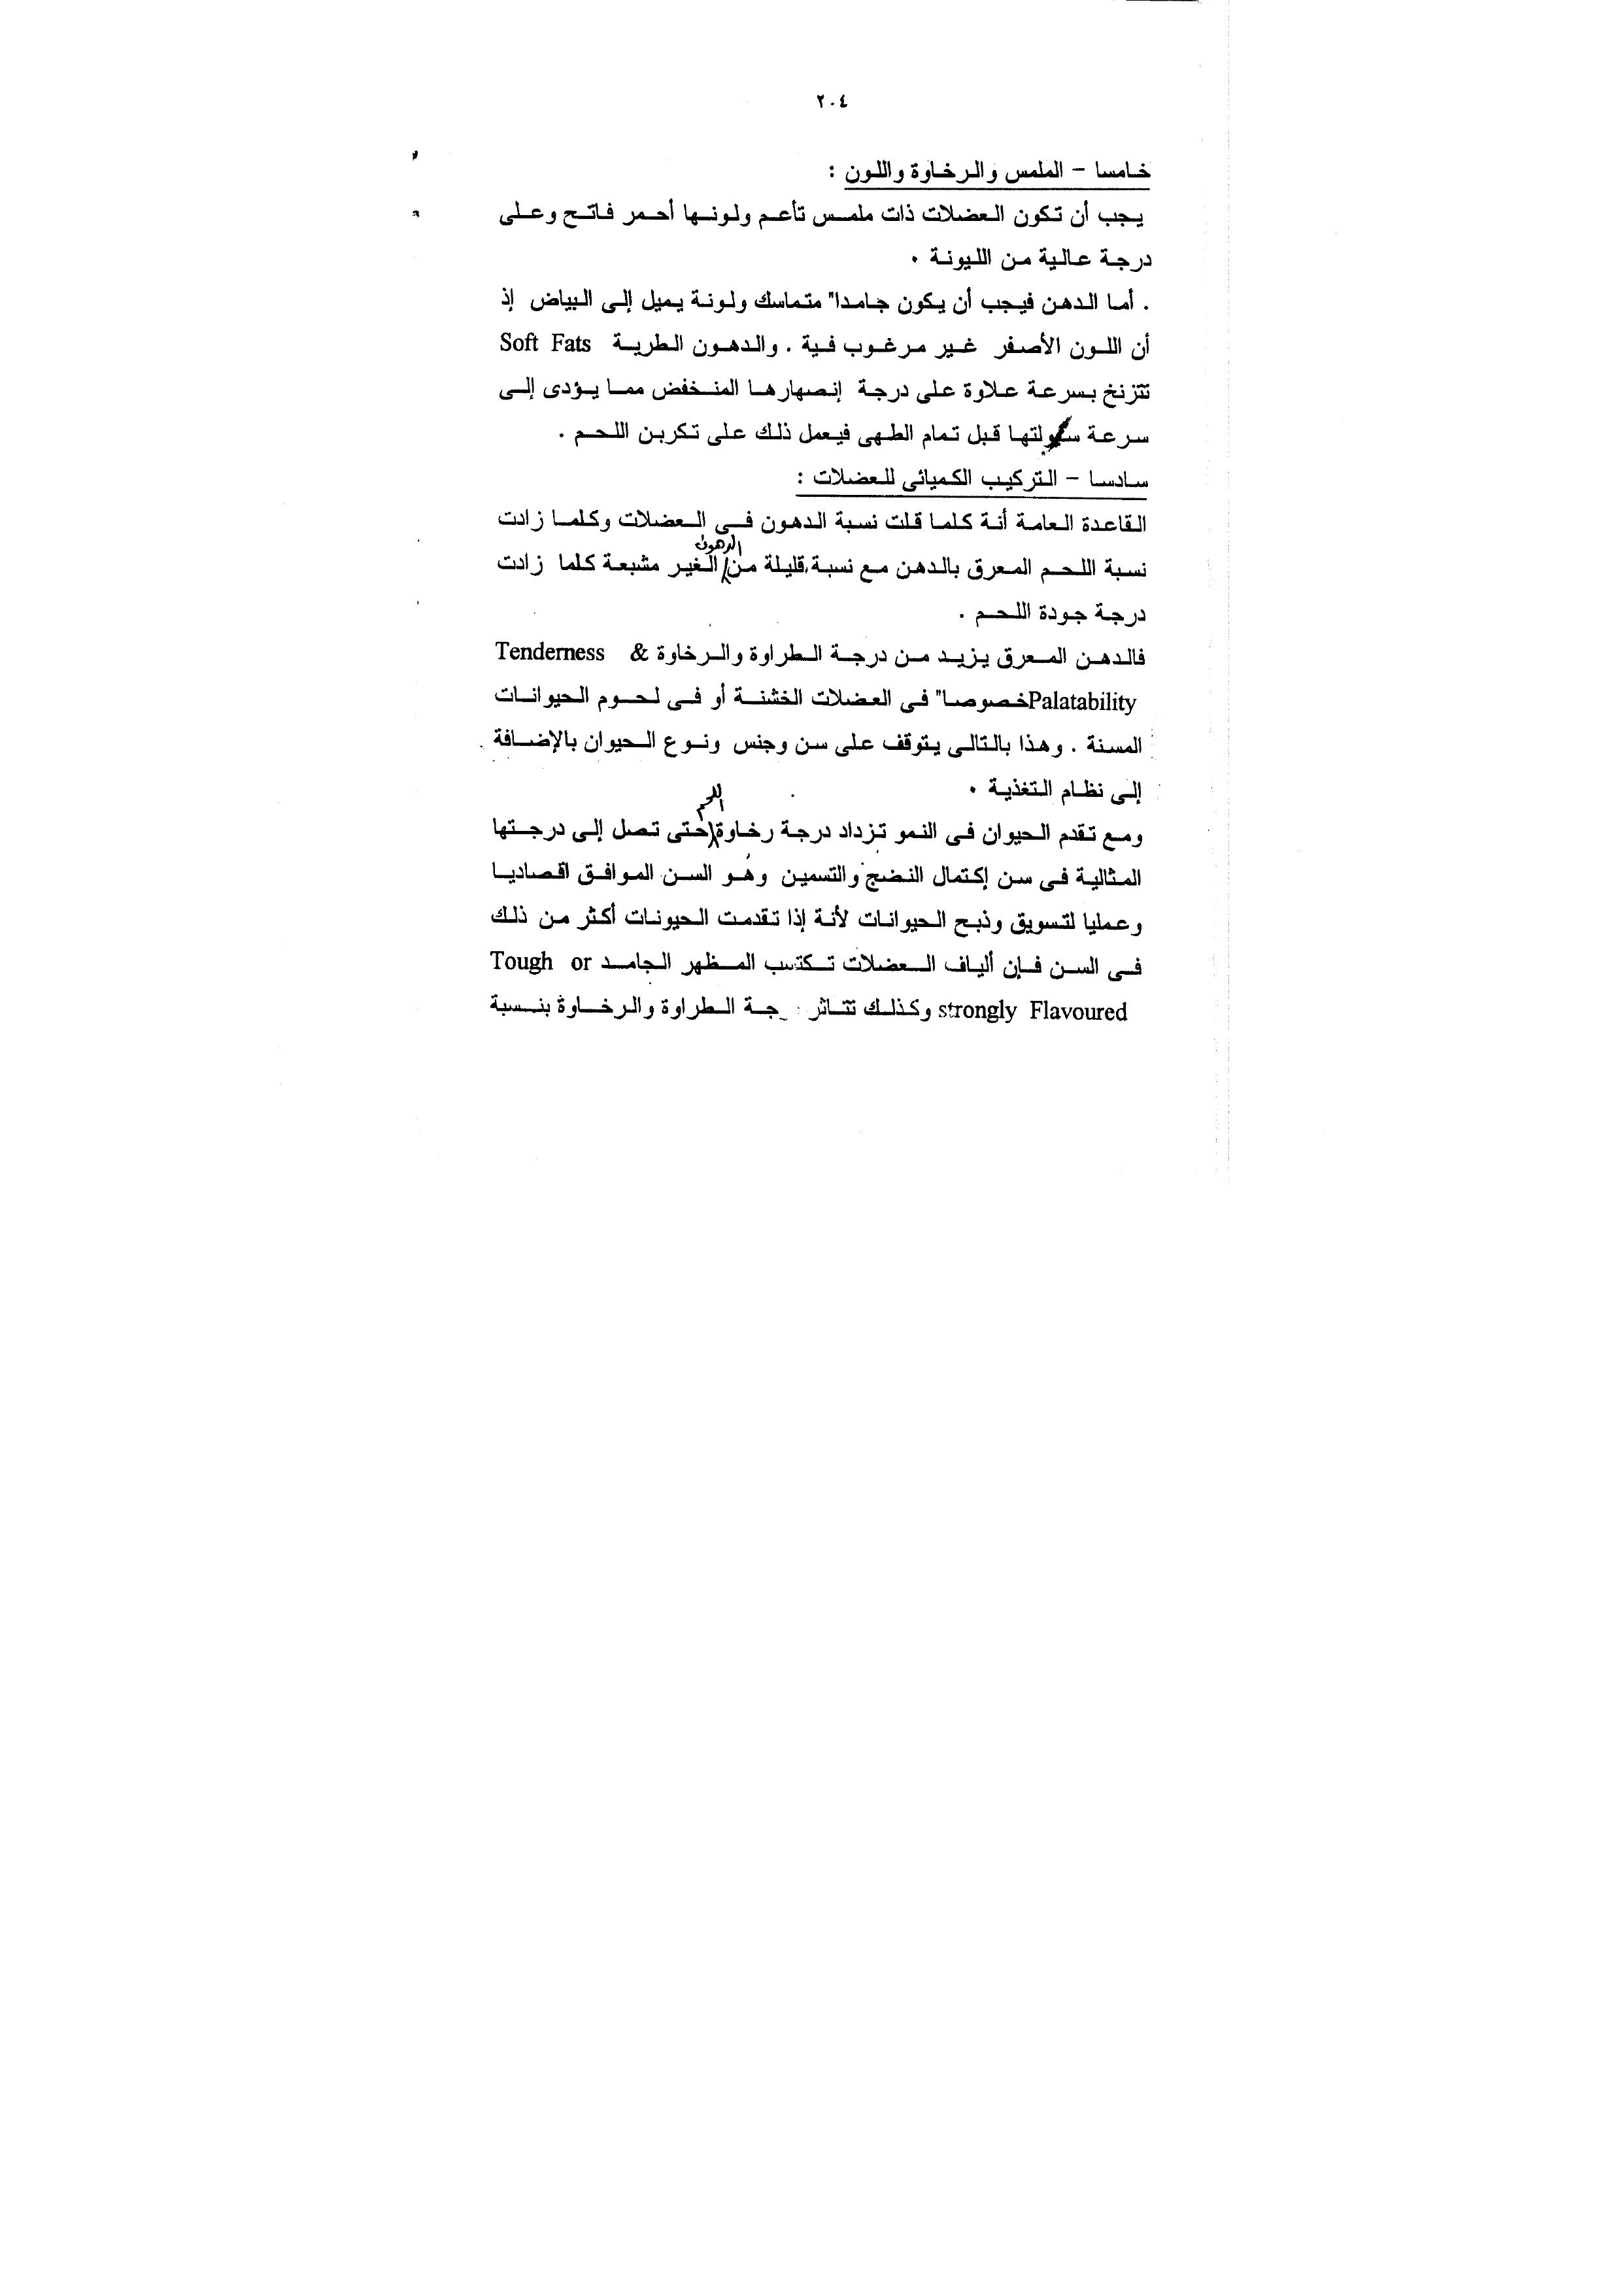 ٢٠٤
خامسا – الملمس والرخاوة واللون :
يجب أن تكون العضلات ذات ملمس تأعم ولونها أحمر فاتح وعلى
درجة عالية من الليونة .
. أما الدهن فيجب أن يكون جامدا" متماسك ولونة يميل إلى البياض إذ
أن اللون الأصفر غير مرغوب فية . والدهون الطرية Soft Fats
تتزنخ بسرعة علاوة على درجة إنصهارها المنخفض مما يؤدى إلى
سرعة سيولتها قبل تمام الطهى فيعمل ذلك على تكربن اللحم .
سادسا – التركيب الكميائى للعضلات :
القاعدة العامة أنة كلما قلت نسبة الدهون فى العضلات وكلما زادت
نسبة اللحم المعرق بالدهن مع نسبة قليلة من الدهون الغير مشبعة كلما زادت
درجة جودة اللحم .
فالدهن المعرق يزيد من درجة الطراوة والرخاوة Tenderness &
Palatability خصوصا" فى العضلات الخشنة أو فى لحوم الحيوانات
المسنة . وهذا بالتالى يتوقف على سن وجنس ونوع الحيوان بالإضافة
إلى نظام التغذية .
ومع تقدم الحيوان فى النمو تزداد درجة رخاوة اللحم حتى تصل إلى درجتها
المثالية فى سن إكتمال النضج والتسمين وهو السن الموافق اقصاديا
وعمليا لتسويق وذبح الحيوانات لأنة إذا تقدمت الحيونات أكثر من ذلك
فى السن فإن ألياف العضلات تكتسب المظهر الجامد Tough or
strongly Flavoured وكذلك تتاثر جة الطراوة والرخاوة بنسبة